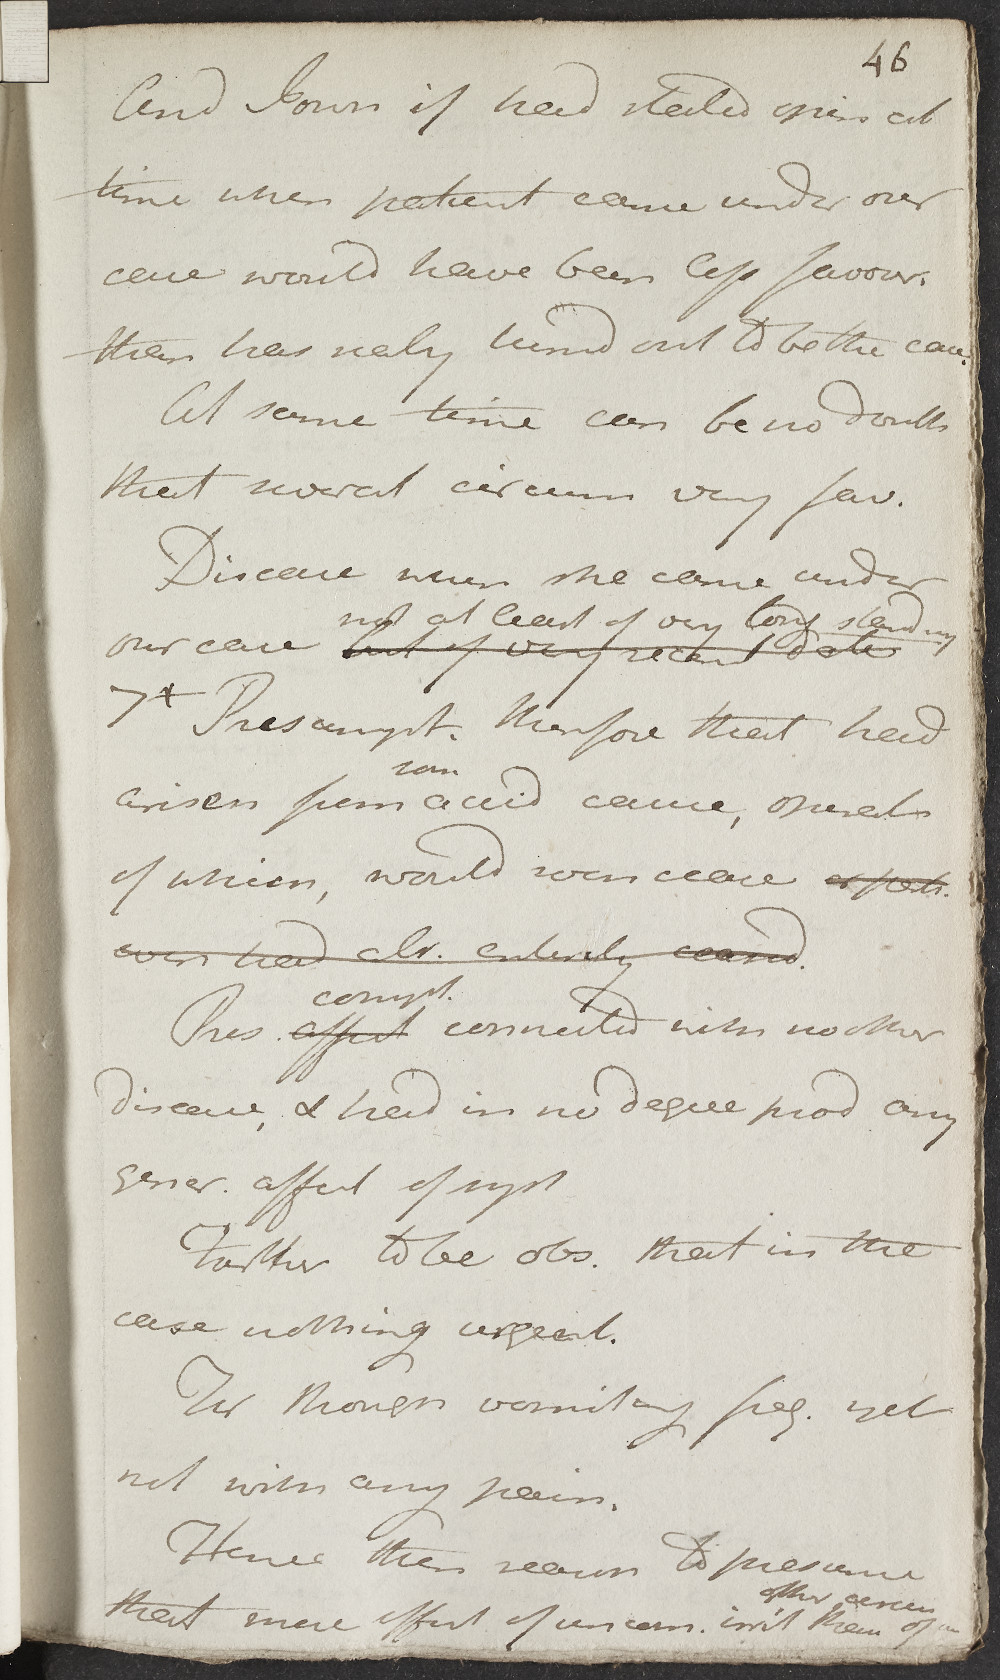 46
And I own if had stated opin at
time when patient came under our
care would have been less favour.
than has realy turnd out to be the case.
At same time can be no doubt
that several circum very fav.
Disease when she came under
not at least of very long standing
our care but of very recent date
7 Presumpt. therefore that had
som
arisen from acid cause, operat
of which, would soon cease
even had alr. entirely ceasd.
compt.
Pres. affect connected with no other
disease, & had in no degree prod any
gener. affect of syst
Farther to be obs. that in the
case nothing urgent.
For though vomiting freq. yet
not with any pain.
Hence then reason to presume
other circum
that mere effect of uncom. irrit than of